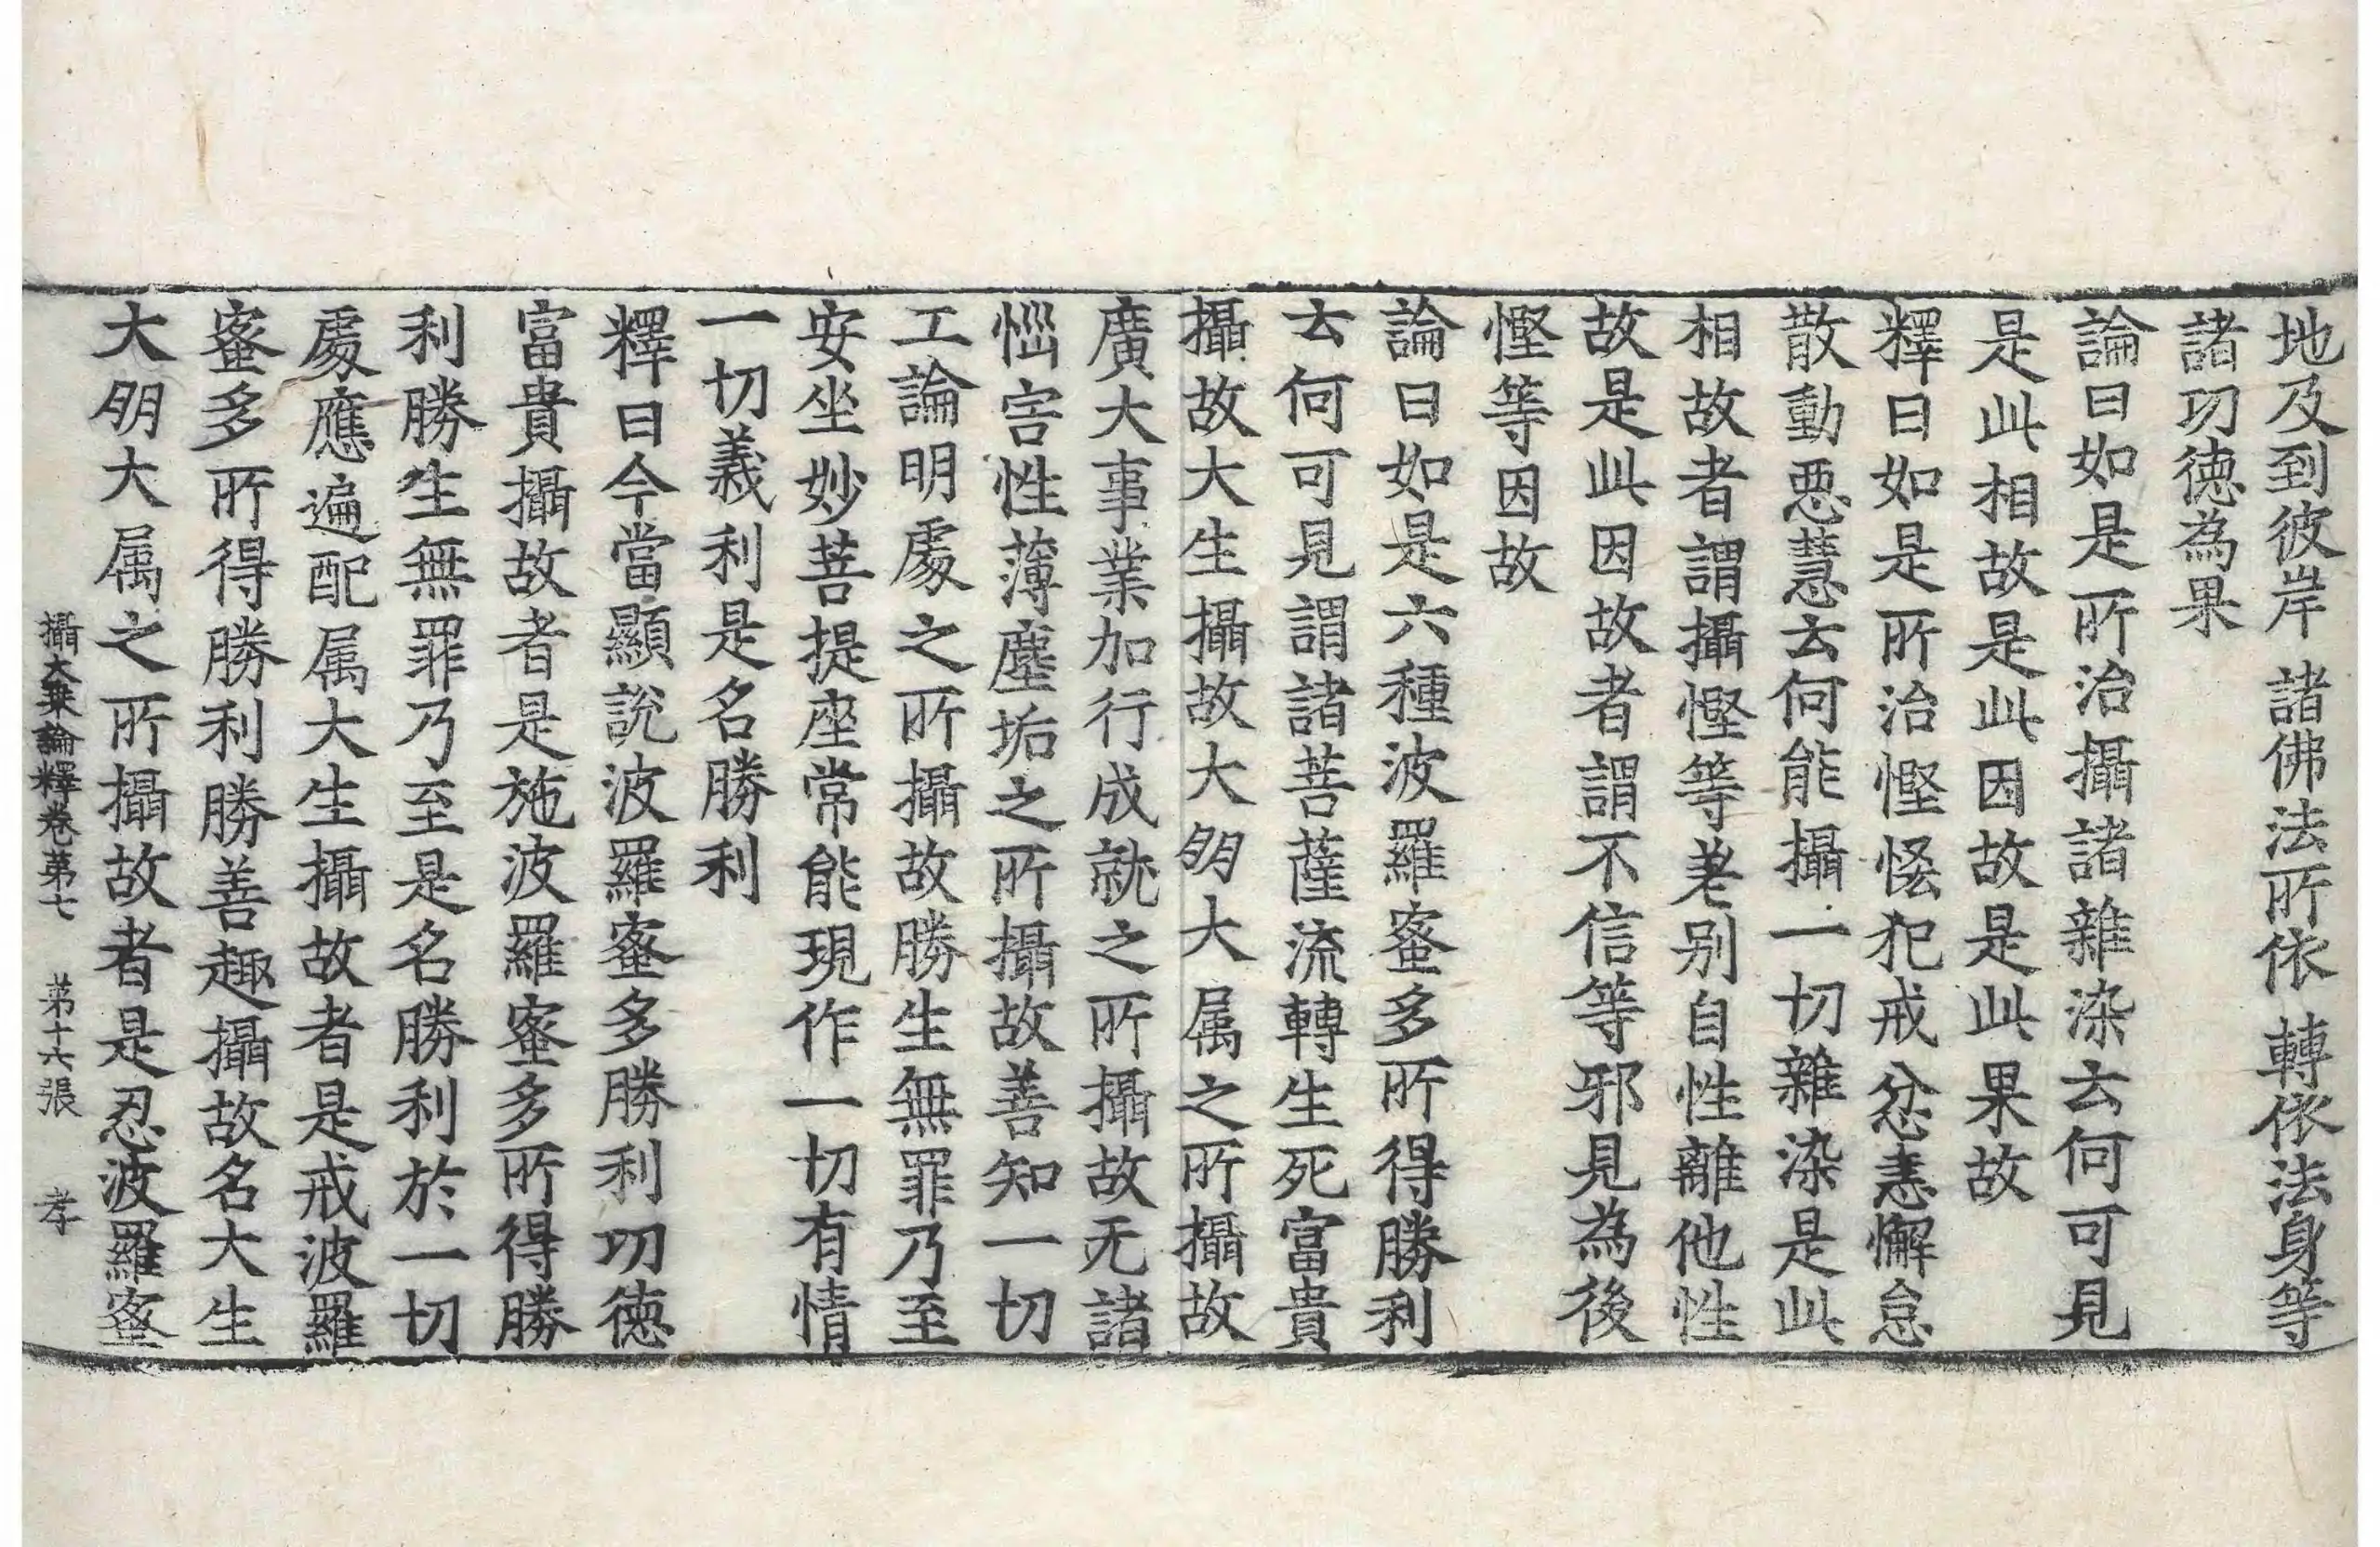 地及到彼岸 諸佛法所依 轉依法身等
諸功德為果
論曰如是所治攝諸雜染云何可見
是此相故是此因故是此果故
釋曰如是所治慳悋犯戒忿恚懈怠
散動惡慧云何能攝一切雜染是此
相故者謂攝慳等差别自性離他性
故是此因故者謂不信等邪見為後
慳等因故
論曰如是六種波羅蜜多所得勝利
云何可見謂諸菩薩流轉生死富貴
攝故大生攝故大朋大属之所攝故
廣大事業加行成就之所攝故无諸
惱害性薄塵垢之所攝故善知一切
工論明處之所攝故勝生無罪乃至
安坐妙菩提座常能現作一切有情
一切義利是名勝利
釋曰今當顯說波羅蜜多勝利功德
富貴攝故者是施波羅蜜多所得勝
利勝生無罪乃至是名勝利於一切
處應遍配属大生攝故者是戒波羅
蜜多所得勝利勝善趣攝故名大生
大朋大属之所攝故者是忍波羅蜜
攝大乗論釋卷第七 第十六張 孝